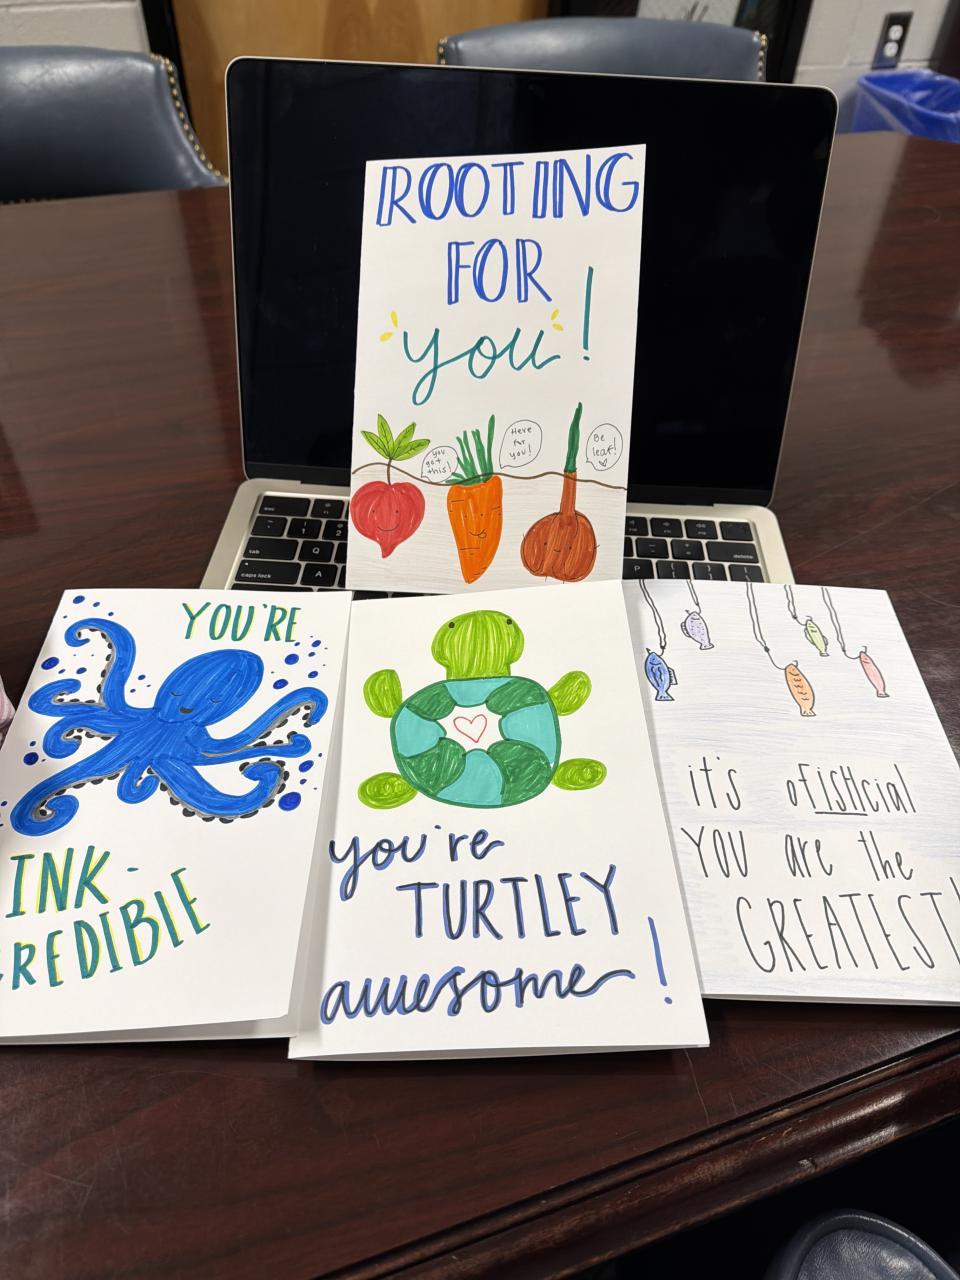 ROOTING
FOR
you!
you
got
this!
Here
for
you!
Be
leaf!
YOU'RE
INK-
CREDIBLE
you're
TURTLEY
awesome!
it's ofishcial
YOU are the
GREATEST!
esc
tab
Q
caps lock
A
P
delete